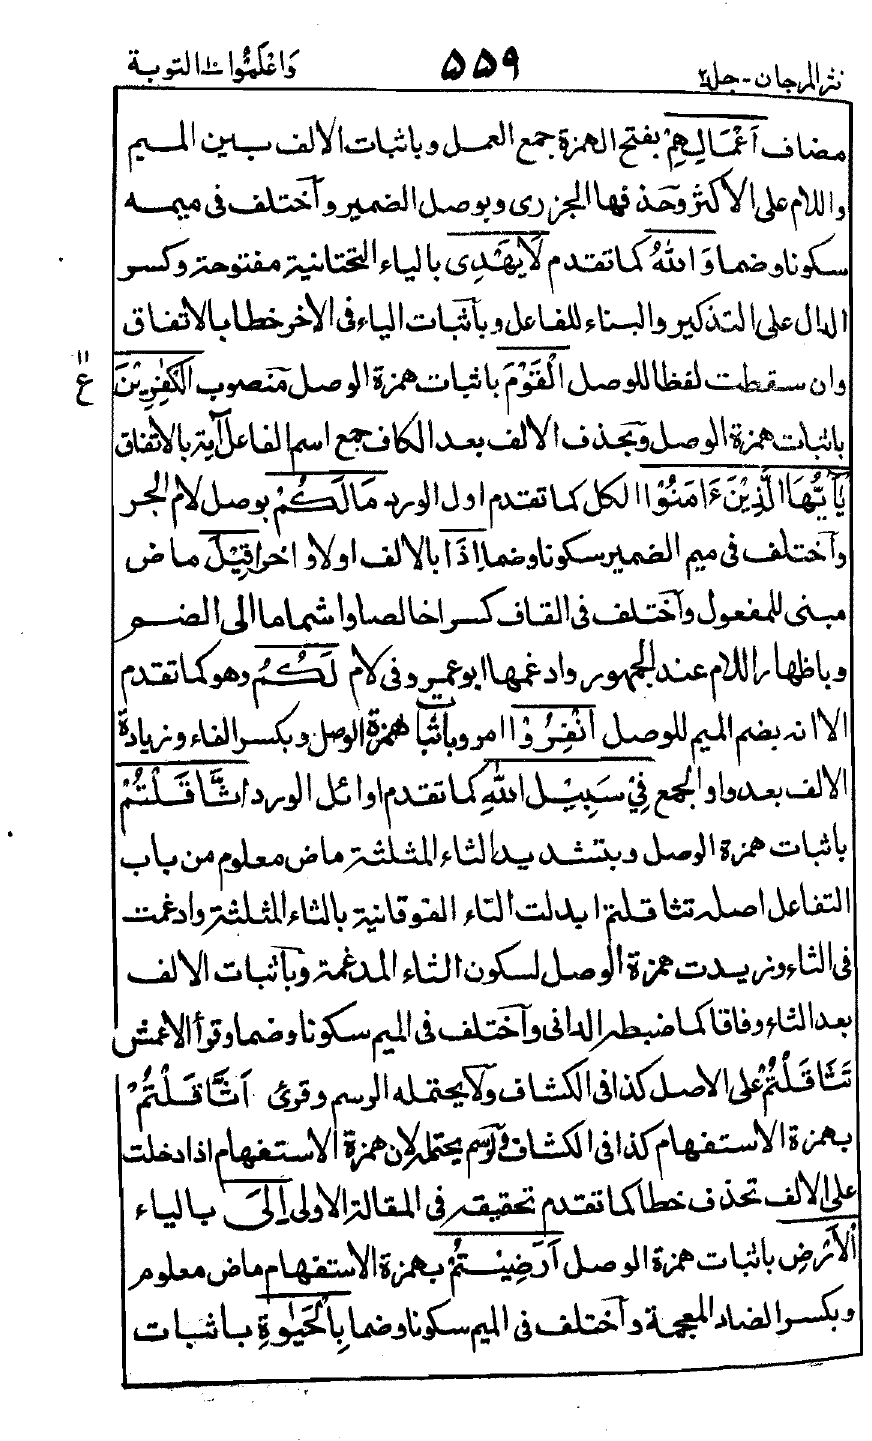 نثر المرجان - جلد۲ ۵۵۹ وَاعْلَمُوْا ۱۰ التوبة
مضاف اَعْمَالِهِمْ بفتح الهمزة جمع العمل وباثبات الالف بين الميم
واللام على الاكثر وحذفها الجزرى وبوصل الضمير وآختلف فى ميمه
سكونا وضما وَاللّٰهُ كما تقدم لَايَهْدِى بالياء التحتانية مفتوحة وكسر
الدال على التذكير والبناء للفاعل وبآثبات الياء فى الاخر خطا بالاتفاق
وان سقطت لفظا للوصل الْقَوْمَ باثبات همزة الوصل منصوب الْكٰفِرِيْنَ
باثبات همزة الوصل وبحذف الالف بعد الكاف جمع اسم الفاعل آية بالاتفاق
يٰاَيُّهَا الَّذِيْنَ ءَامَنُوْا الكل كما تقدم اول الورد مَالَكُمْ بوصل لام الجر
وآختلف فى ميم الضمير سكونا وضما اِذَا بالالف اولا واخرا قِيْلَ ماض
مبنى للمفعول وآختلف فى القاف كسرا خالصا واشماما الى الضم
وباظهار اللام عند الجمهور وادغمها ابو عمرو فى لام لَكُمُ وهو كما تقدم
الا انه بضم الميم للوصل انْفِرُوْا امر وباثبات همزة الوصل وبكسر الفاء وزيادة
الالف بعد واو الجمع فِيْ سَبِيْلِ اللّٰهِ كما تقدم اوائل الورد اثَّاقَلْتُمْ
باثبات همزة الوصل وبتشديد الثاء المثلثة ماض معلوم من باب
التفاعل اصله تثاقلتم ابدلت التاء الفوقانية بالثاء المثلثة وادغمت
فى الثاء وزيدت همزة الوصل لسكون الثاء المدغمة وبآثبات الالف
بعد الثاء وفاقا كما ضبطه الدانى وآختلف فى الميم سكونا وضما وقرأ الاعمش
تَثَاقَلْتُمْ على الاصل كذا فى الكشاف ولا يحتمله الرسم وقرئ اَثَّاقَلْتُمْ
بهمزة الاستفهام كذا فى الكشاف والرسم يحتمله لان همزة الاستفهام اذا دخلت
على الالف تحذف خطا كما تقدم تحقيقه فى المقالة الاولى اِلَى بالياء
الْاَرْضِ باثبات همزة الوصل اَرَضِيْتُمْ بهمزة الاستفهام ماض معلوم
وبكسر الضاد المعجمة وآختلف فى الميم سكونا وضما بِالْحَيٰوةِ باثبات
۱۱
ع